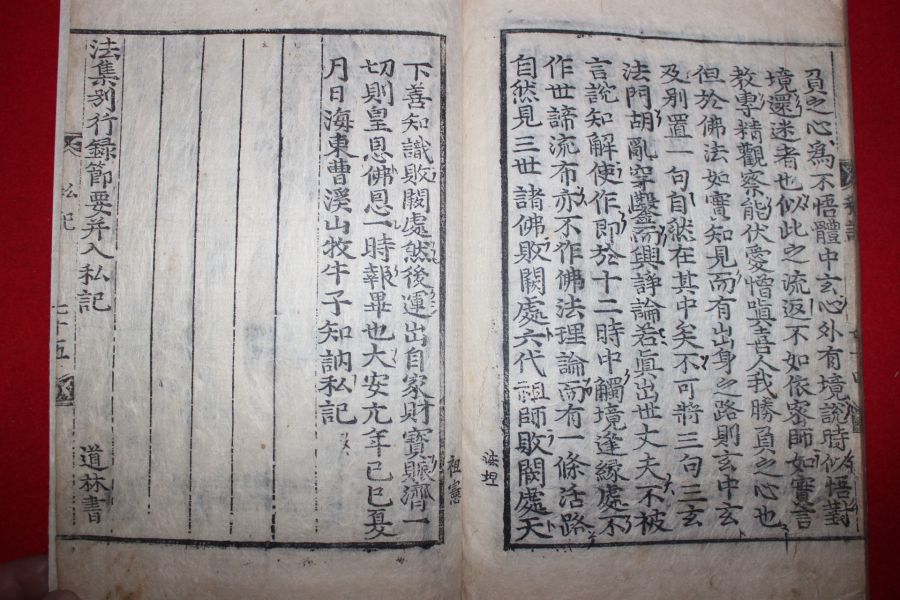 負之心爲不悟體中玄心外有境說時似悟對
境還迷者也似此之流返不如依密師如實言
敎專精觀察能伏愛憎嗔喜人我勝負之心也
但於佛法如實知見而有出身之路則玄中玄
及別置一句自然在其中矣不可將三句三玄
法門胡亂穿鑿而興諍論若眞出世丈夫不被
言說知解使作即於十二時中觸境逢緣處不
作世諦流布亦不作佛法理論而有一條活路
自然見三世諸佛敗闕處六代祖師敗闕處天
法理
祖憲
下善知識敗闕處然後運出自家財寶賑濟一
切則皇恩佛恩一時報畢也大安元年己巳夏
月日海東曹溪山牧牛子知訥私記
法集別行錄節要并入私記
道林書
私記
七十五